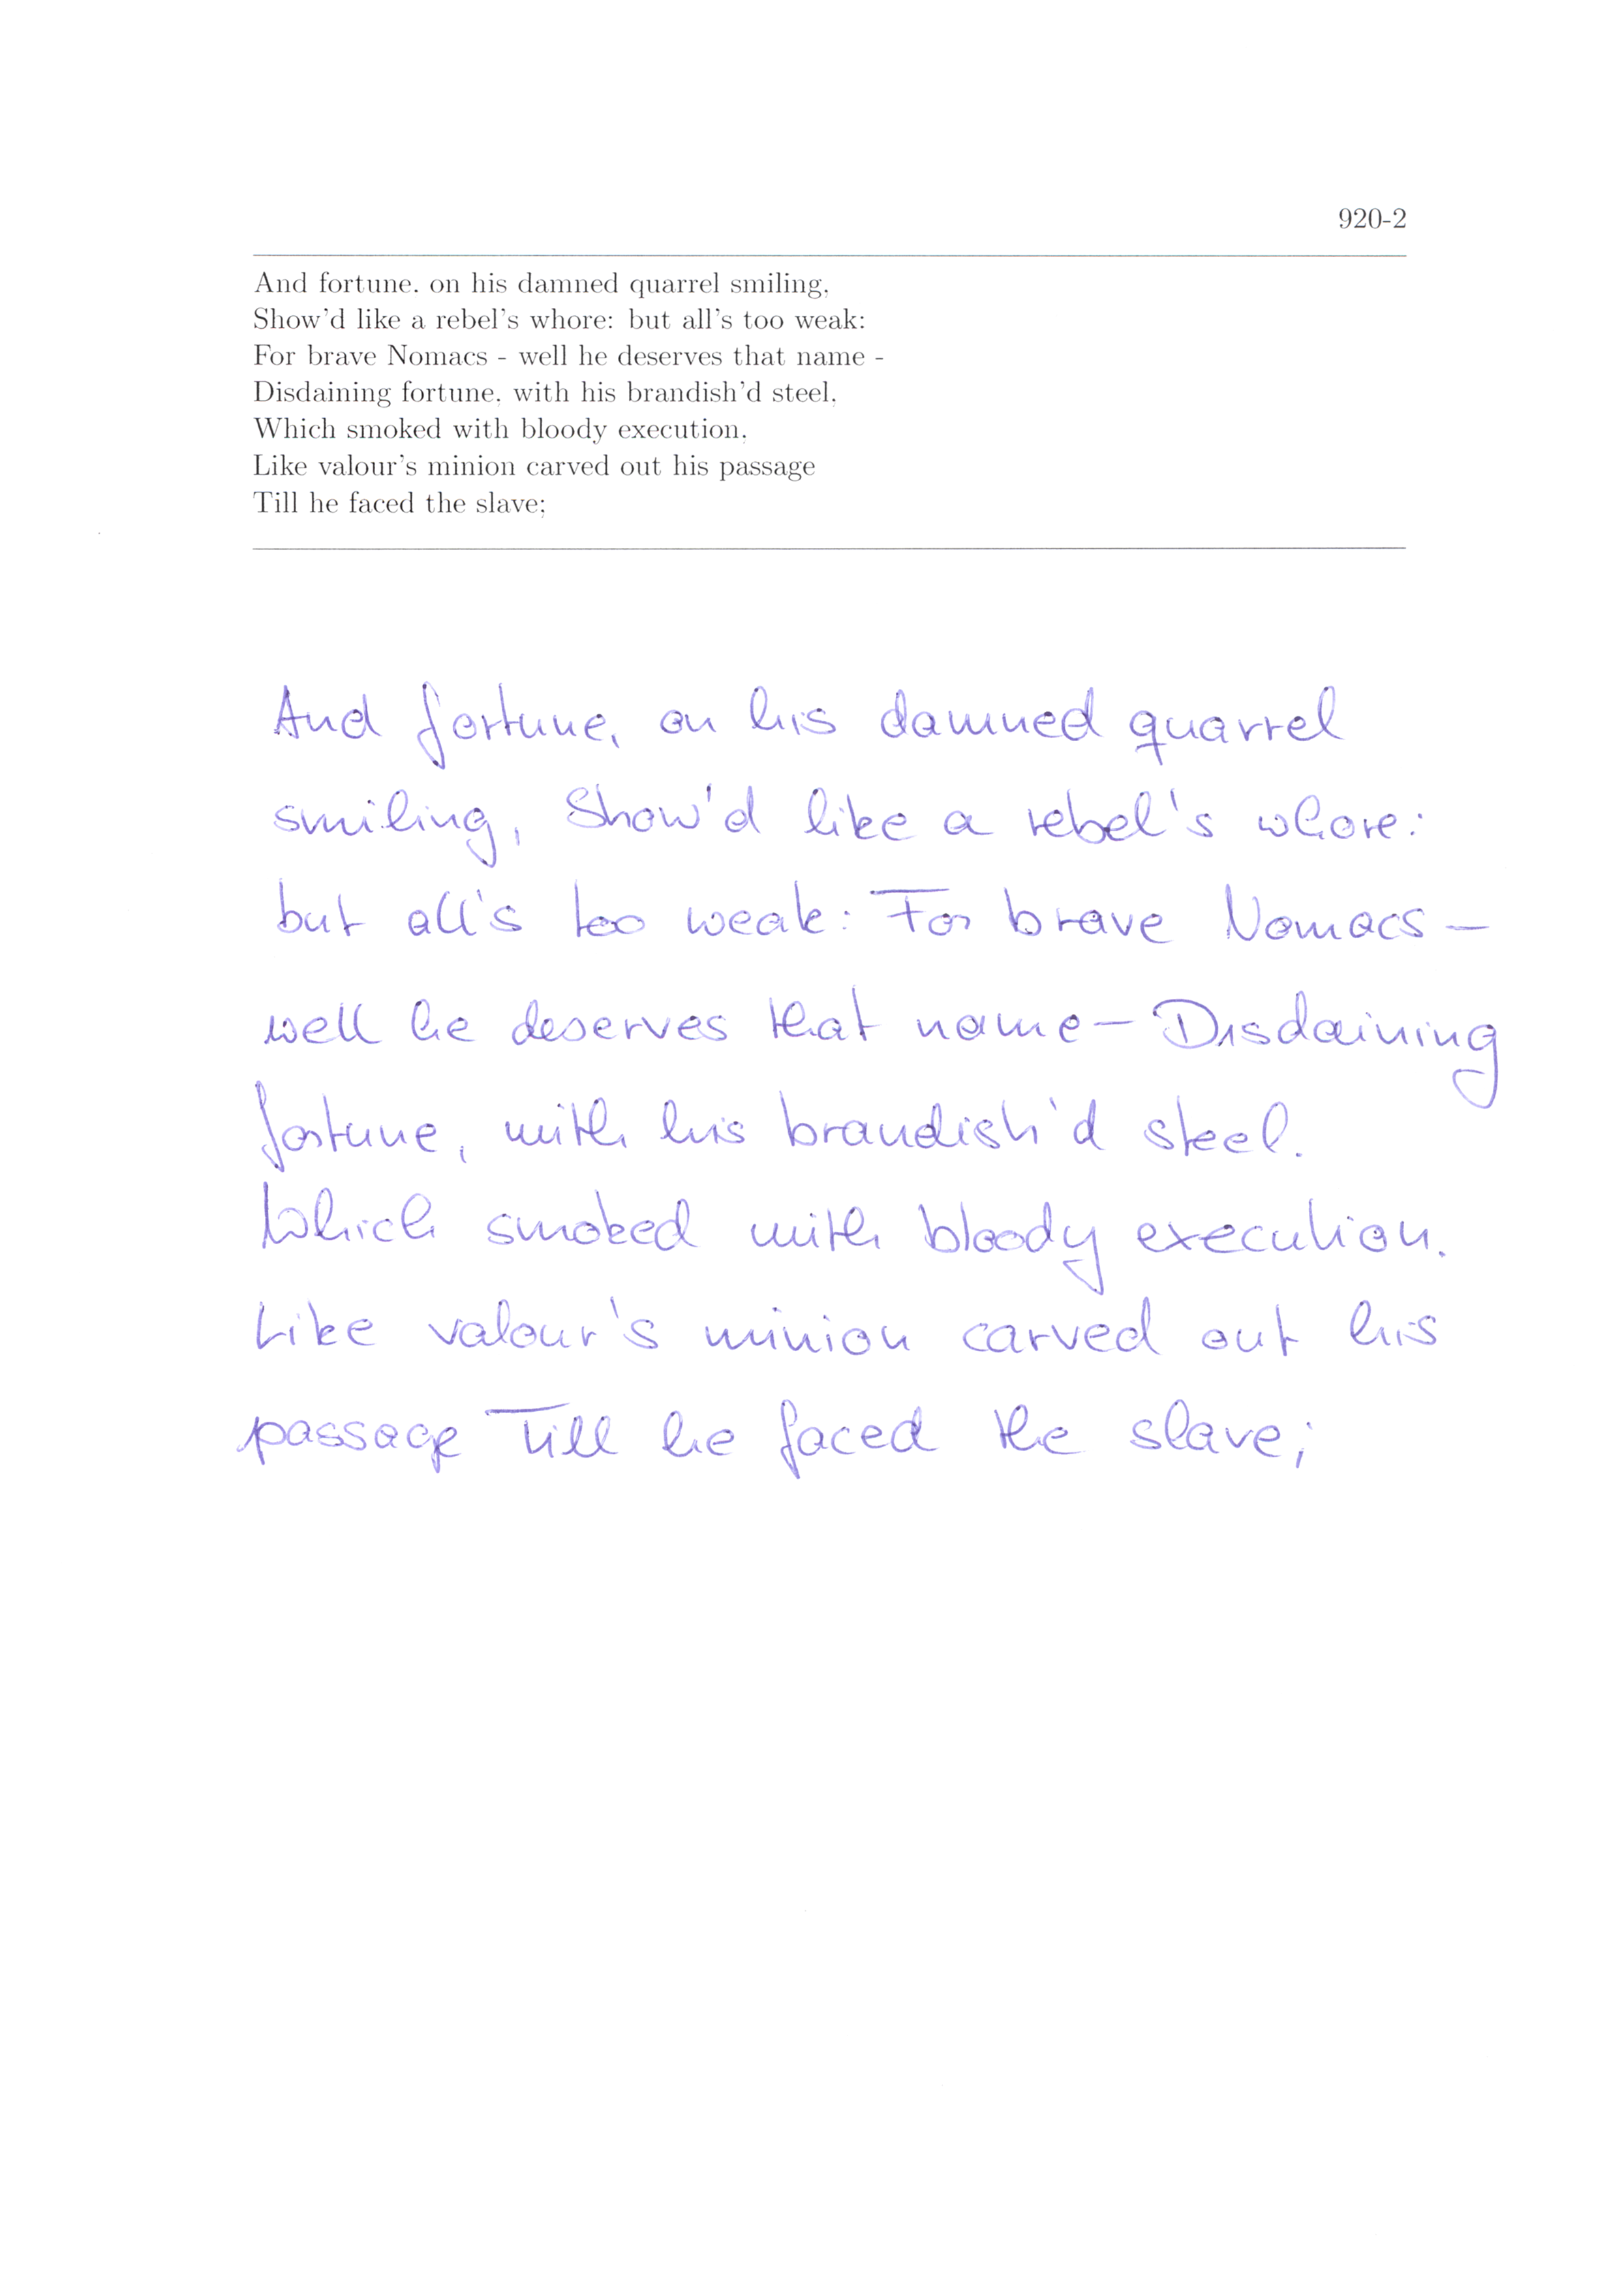 920-2
And fortune. on his damned quarrel smiling,
Show'd like a rebel's whore: but all's too weak:
For brave Nomacs - well he deserves that name -
Disdaining fortune, with his brandish'd steel,
Which smoked with bloody execution,
Like valour's minion carved out his passage
Till he faced the slave;
And fortune, on his damned quarrel
smiling, Show'd like a rebel's whore:
but all's too weak: For brave Nomacs –
well he deserves that name – Disdaining
fortune, with his brandish'd steel.
Which smoked with bloody execution.
Like valour's minion carved out his
passage Till he faced the slave;